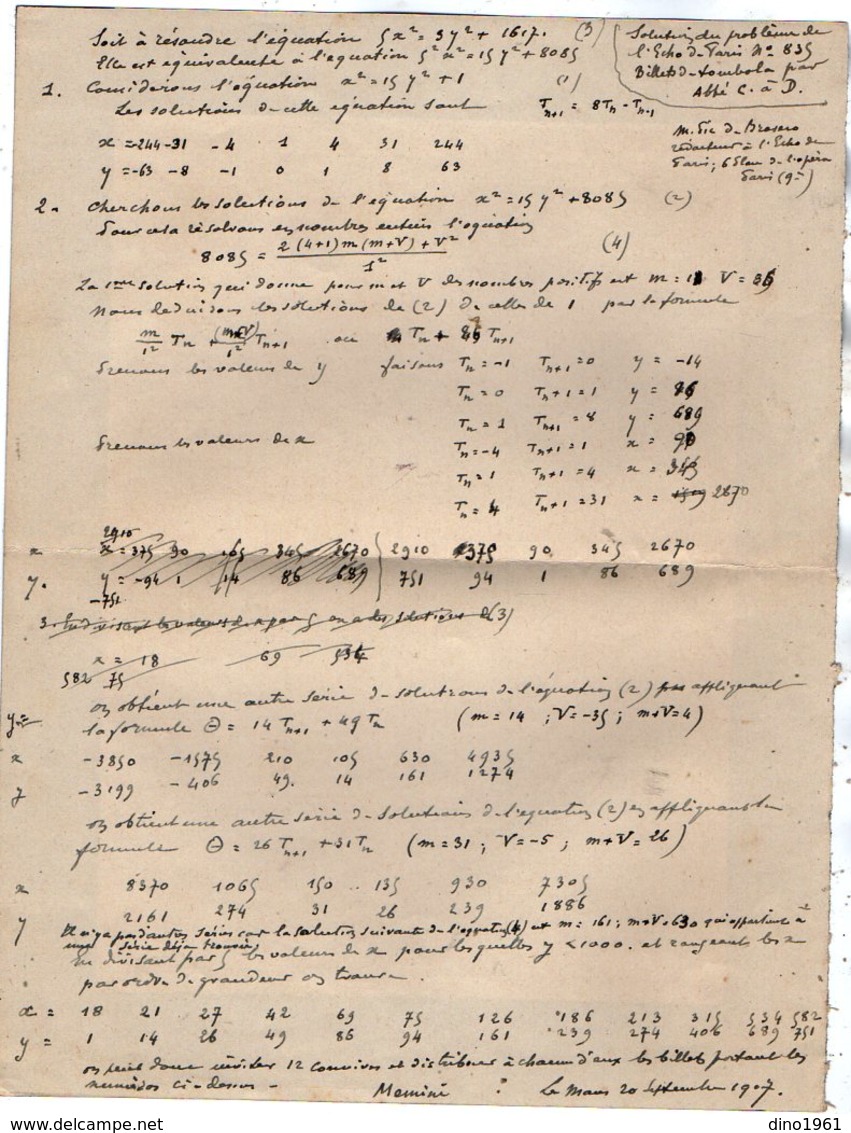 Soit à résoudre l'équation 5x² = 3y² + 1617. (3)
Elle est équivalente à l'equation 5²x² = 15y² + 8085
Solution du problème de
l'Echo de Paris N° 835
Billets de tombola par
Abbé C. à D.
1. Considérons l'équation x² = 15y² + 1 (1)
Les solutions de cette equation sont Tn+1 = 8Tn - Tn-1
M.
rédacteur à l'Echo de
Paris, 6 Place de l'opéra
Paris (9e)
x = -244 -31 -4 1 4 31 244
y = -63 -8 -1 0 1 8 63
2 - Cherchons les solutions de l'equation x² = 15y² + 8085 (2)
Pour cela résolvons en nombres entiers l'equation
8085 = 2(4+1)m(m+V) + V² / 1² (4)
La 1ère solution qui donne pour m et V des nombres positifs est m = 1 V = 85
Nous deduisons les solutions de (2) de celles de 1 par la formule
m/1² Tn + (m+V)/1² Tn+1 ou Tn + 86 Tn+1
Prenons les valeurs de y faisons Tn = -1 Tn+1 = 0 y = -14
Tn = 0 Tn+1 = 1 y = 86
Tn = 1 Tn+1 = 8 y = 689
Prenons les valeurs de x Tn = -4 Tn+1 = 1 x = 90
Tn = 1 Tn+1 = 4 x = 345
Tn = 4 Tn+1 = 31 x = 2670
2910
x x = 375 90 165 345 2670 2910 375 90 345 2670
y. y = -94 1 14 86 689 751 94 1 86 689
-751
3. En divisant les valeurs de x par 5 on a les solutions de (3)
x = 18 69 534
582 75
on obtient une autre serie de solutions de l'équation (2) en appliquant
la formule Θ = 14 Tn+1 + 49 Tn (m = 14 ; V = -35 ; m+V = 4)
y =
x -3850 -1575 210 105 630 4935
y -3199 -406 49. 14 161 1274
on obtient une autre serie de solutions de l'equation (2) en appliquant la
formule Θ = 26 Tn+1 + 31 Tn (m = 31 ; V = -5 ; m+V = 26)
x 8370 1065 150 135 930 7305
y 2161 274 31 26 239 1886
Il n'y a pas d'autres séries car la solution suivante de l'equation (4) est m = 161 ; m+V = 630 qui appartient à
une série déja trouvée.
En divisant par 5 les valeurs de x pour lesquelles y < 1000. et rangeant les x
par ordre de grandeur on trouve.
x = 18 21 27 42 69 75 126 186 213 315 534 582
y = 1 14 26 49 86 94 161 239 274 406 689 751
on peut donc inviter 12 convives et distribuer à chacun d'eux les billets portant les
numéros ci-dessus -
Memini Le Mans 20 Septembre 1907.
www.delcampe.net
dino1961